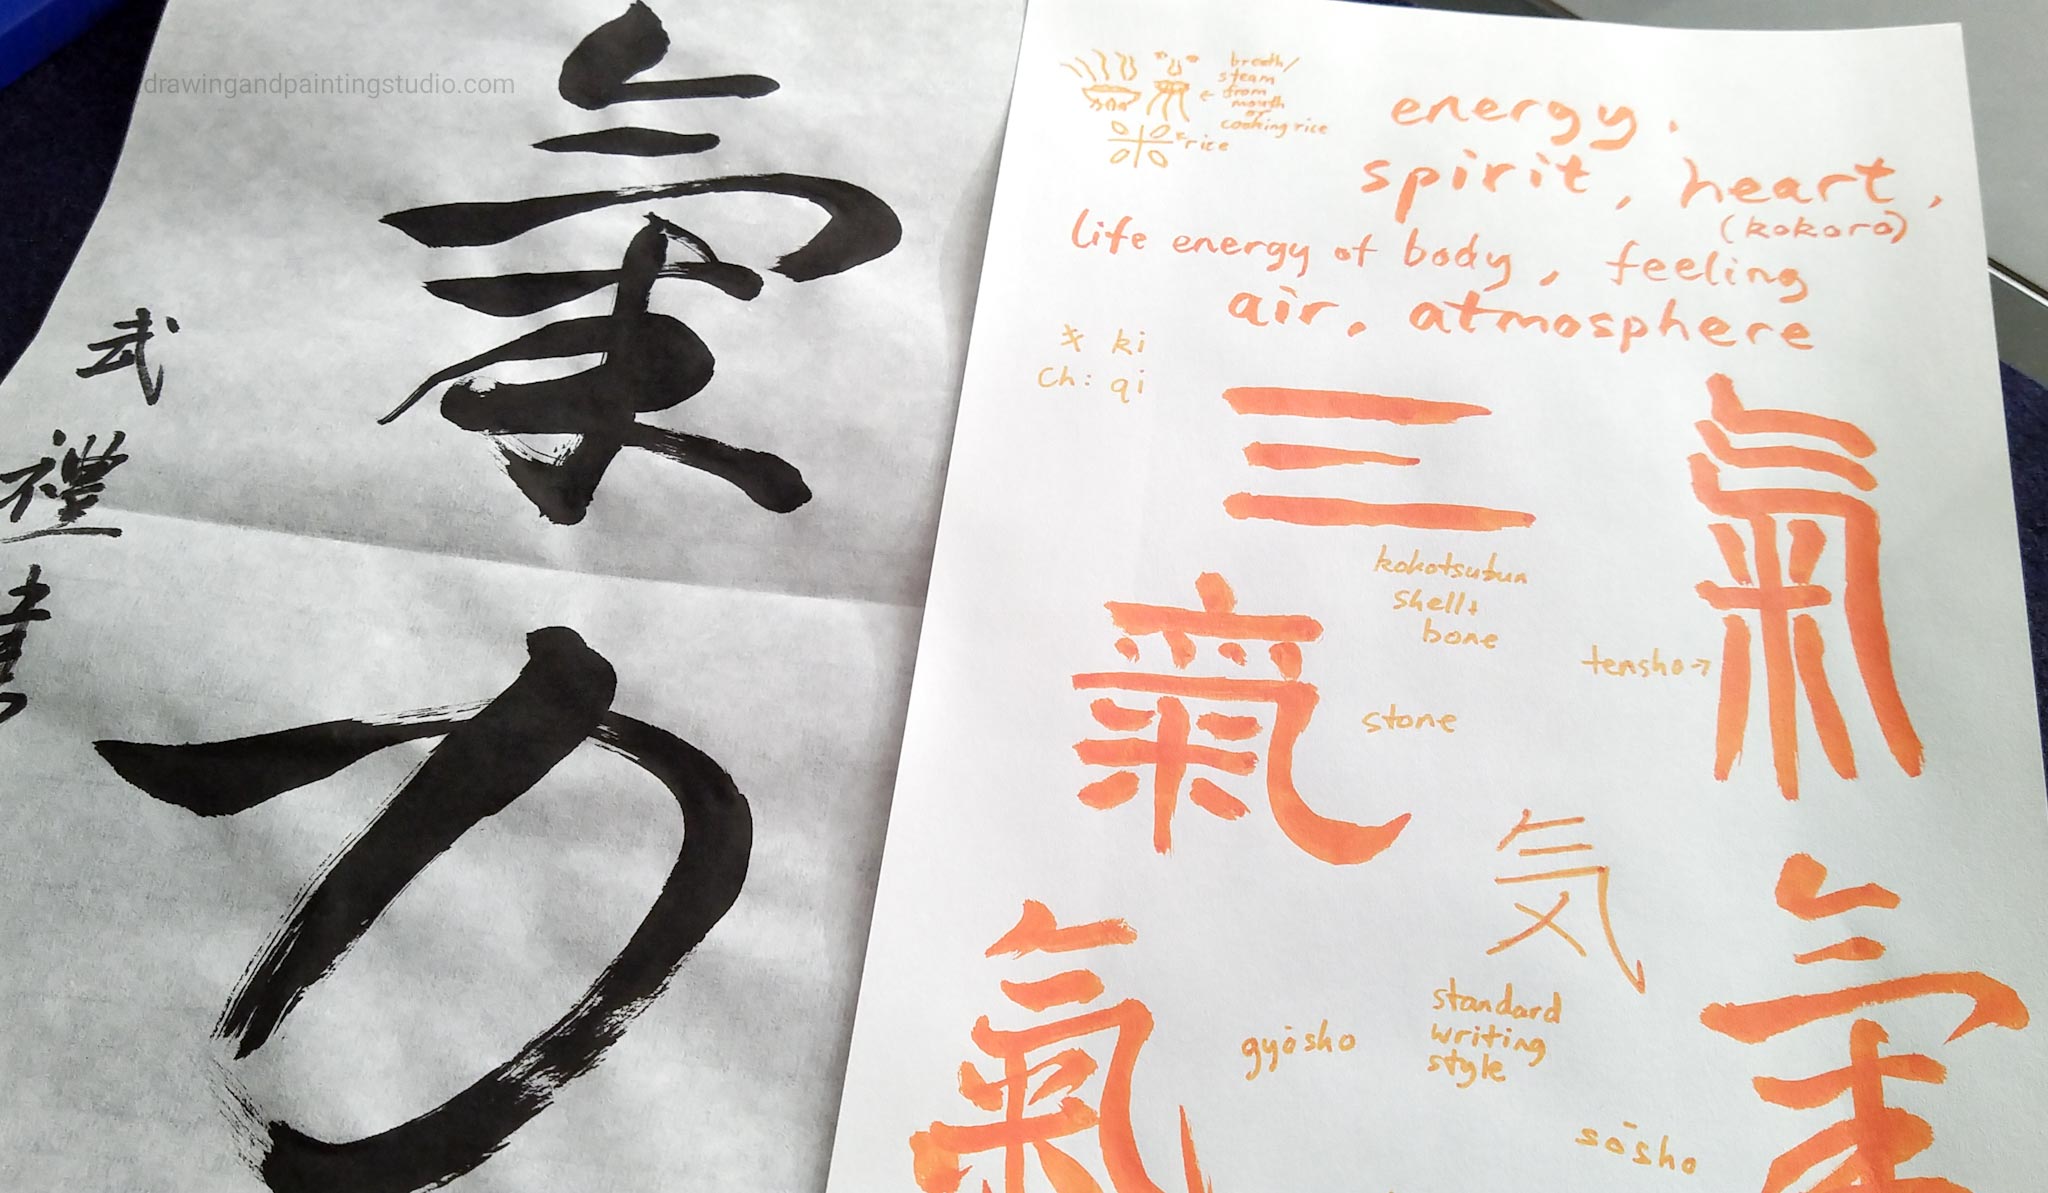 drawingandpaintingstudio.com
氣
力
武
禮
書
breath/
steam
from
mouth
or
cooking rice
rice
energy,
spirit, heart,
(kokoro)
life energy of body, feeling
air, atmosphere
キ ki
Ch: qi
三
kokotsubun
shell+
bone
氣
tensho→
氣
stone
気
standard
writing
style
氣
gyōsho
氣
sōsho